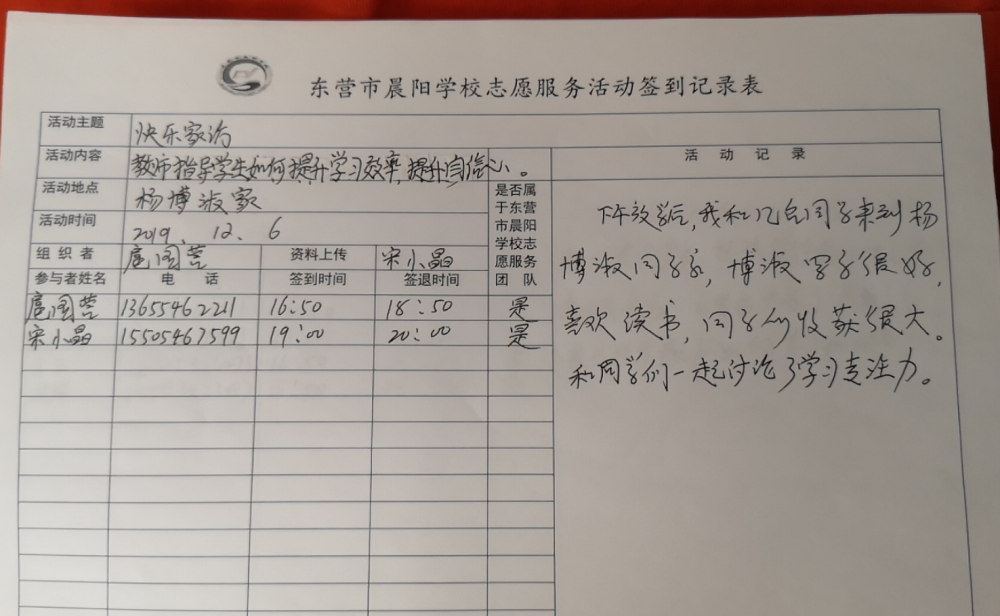 东营市晨阳学校志愿服务活动签到记录表
活动主题 快乐家访
活动内容 教师指导学生如何提升学习效率,提升自信心。
活动地点 杨博淑家
活动时间 2019. 12. 6
组织者 扈国营 资料上传 宋小晶
参与者姓名 电话 签到时间 签退时间 是否属于东营市晨阳学校志愿服务团队
扈国营 13655462211 16:50 18:50 是
宋小晶 15505467599 19:00 20:00 是
活动记录
下午放学后,我和几名同学来到杨
博淑同学家,博淑学习很好,
喜欢读书,同学们收获很大。
和同学们一起讨论了学习专注力。